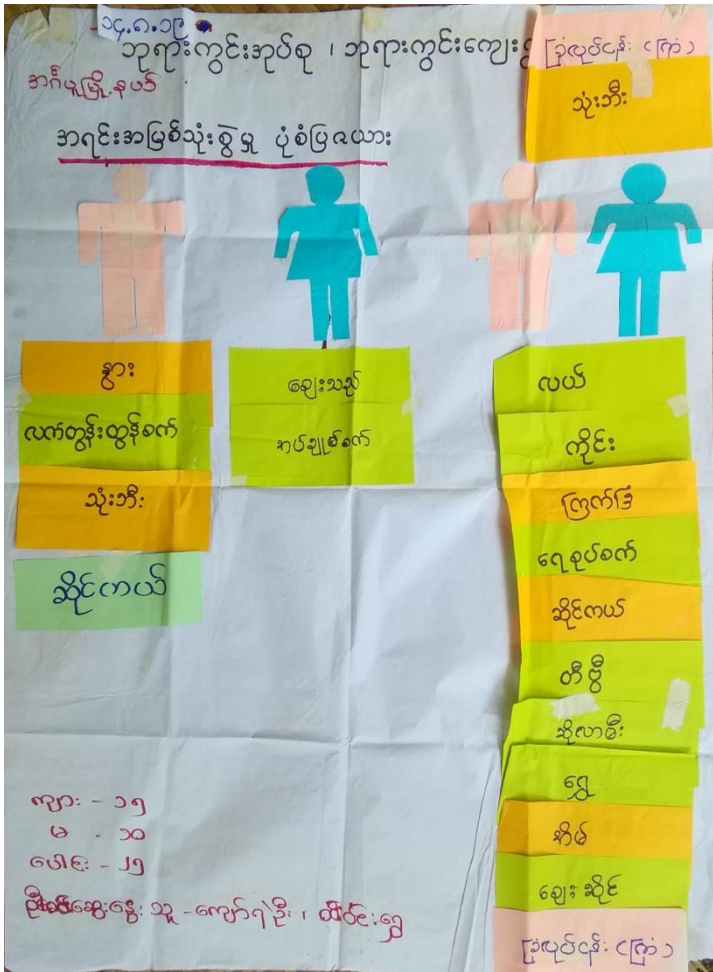 ၁၄.၈.၁၉
ဘုရားကွင်းအုပ်စု ၊ ဘုရားကွင်းကျေး
ခြံလုပ်ငန်း (ကြံ)
သုံးဘီး
အင်္ဂပူမြို့နယ်
အရင်းအမြစ်သုံးစွဲမှု ပုံစံပြဇယား
နွား
လက်တွန်းထွန်စက်
သုံးဘီး
ဆိုင်ကယ်
ဈေးသည်
အပ်ချုပ်စက်
လယ်
ကိုင်း
ကြက်ခြံ
ရေစုပ်စက်
ဆိုင်ကယ်
တီဗွီ
ဆိုလာမီး
ရွှေ
အိမ်
ဈေးဆိုင်
ခြံလုပ်ငန်း (ကြံ)
ကျား - ၁၅
မ - ၁၀
ပေါင်း - ၂၅
ဆွေးနွေးသူ - ကျော်ရဲဦး ၊